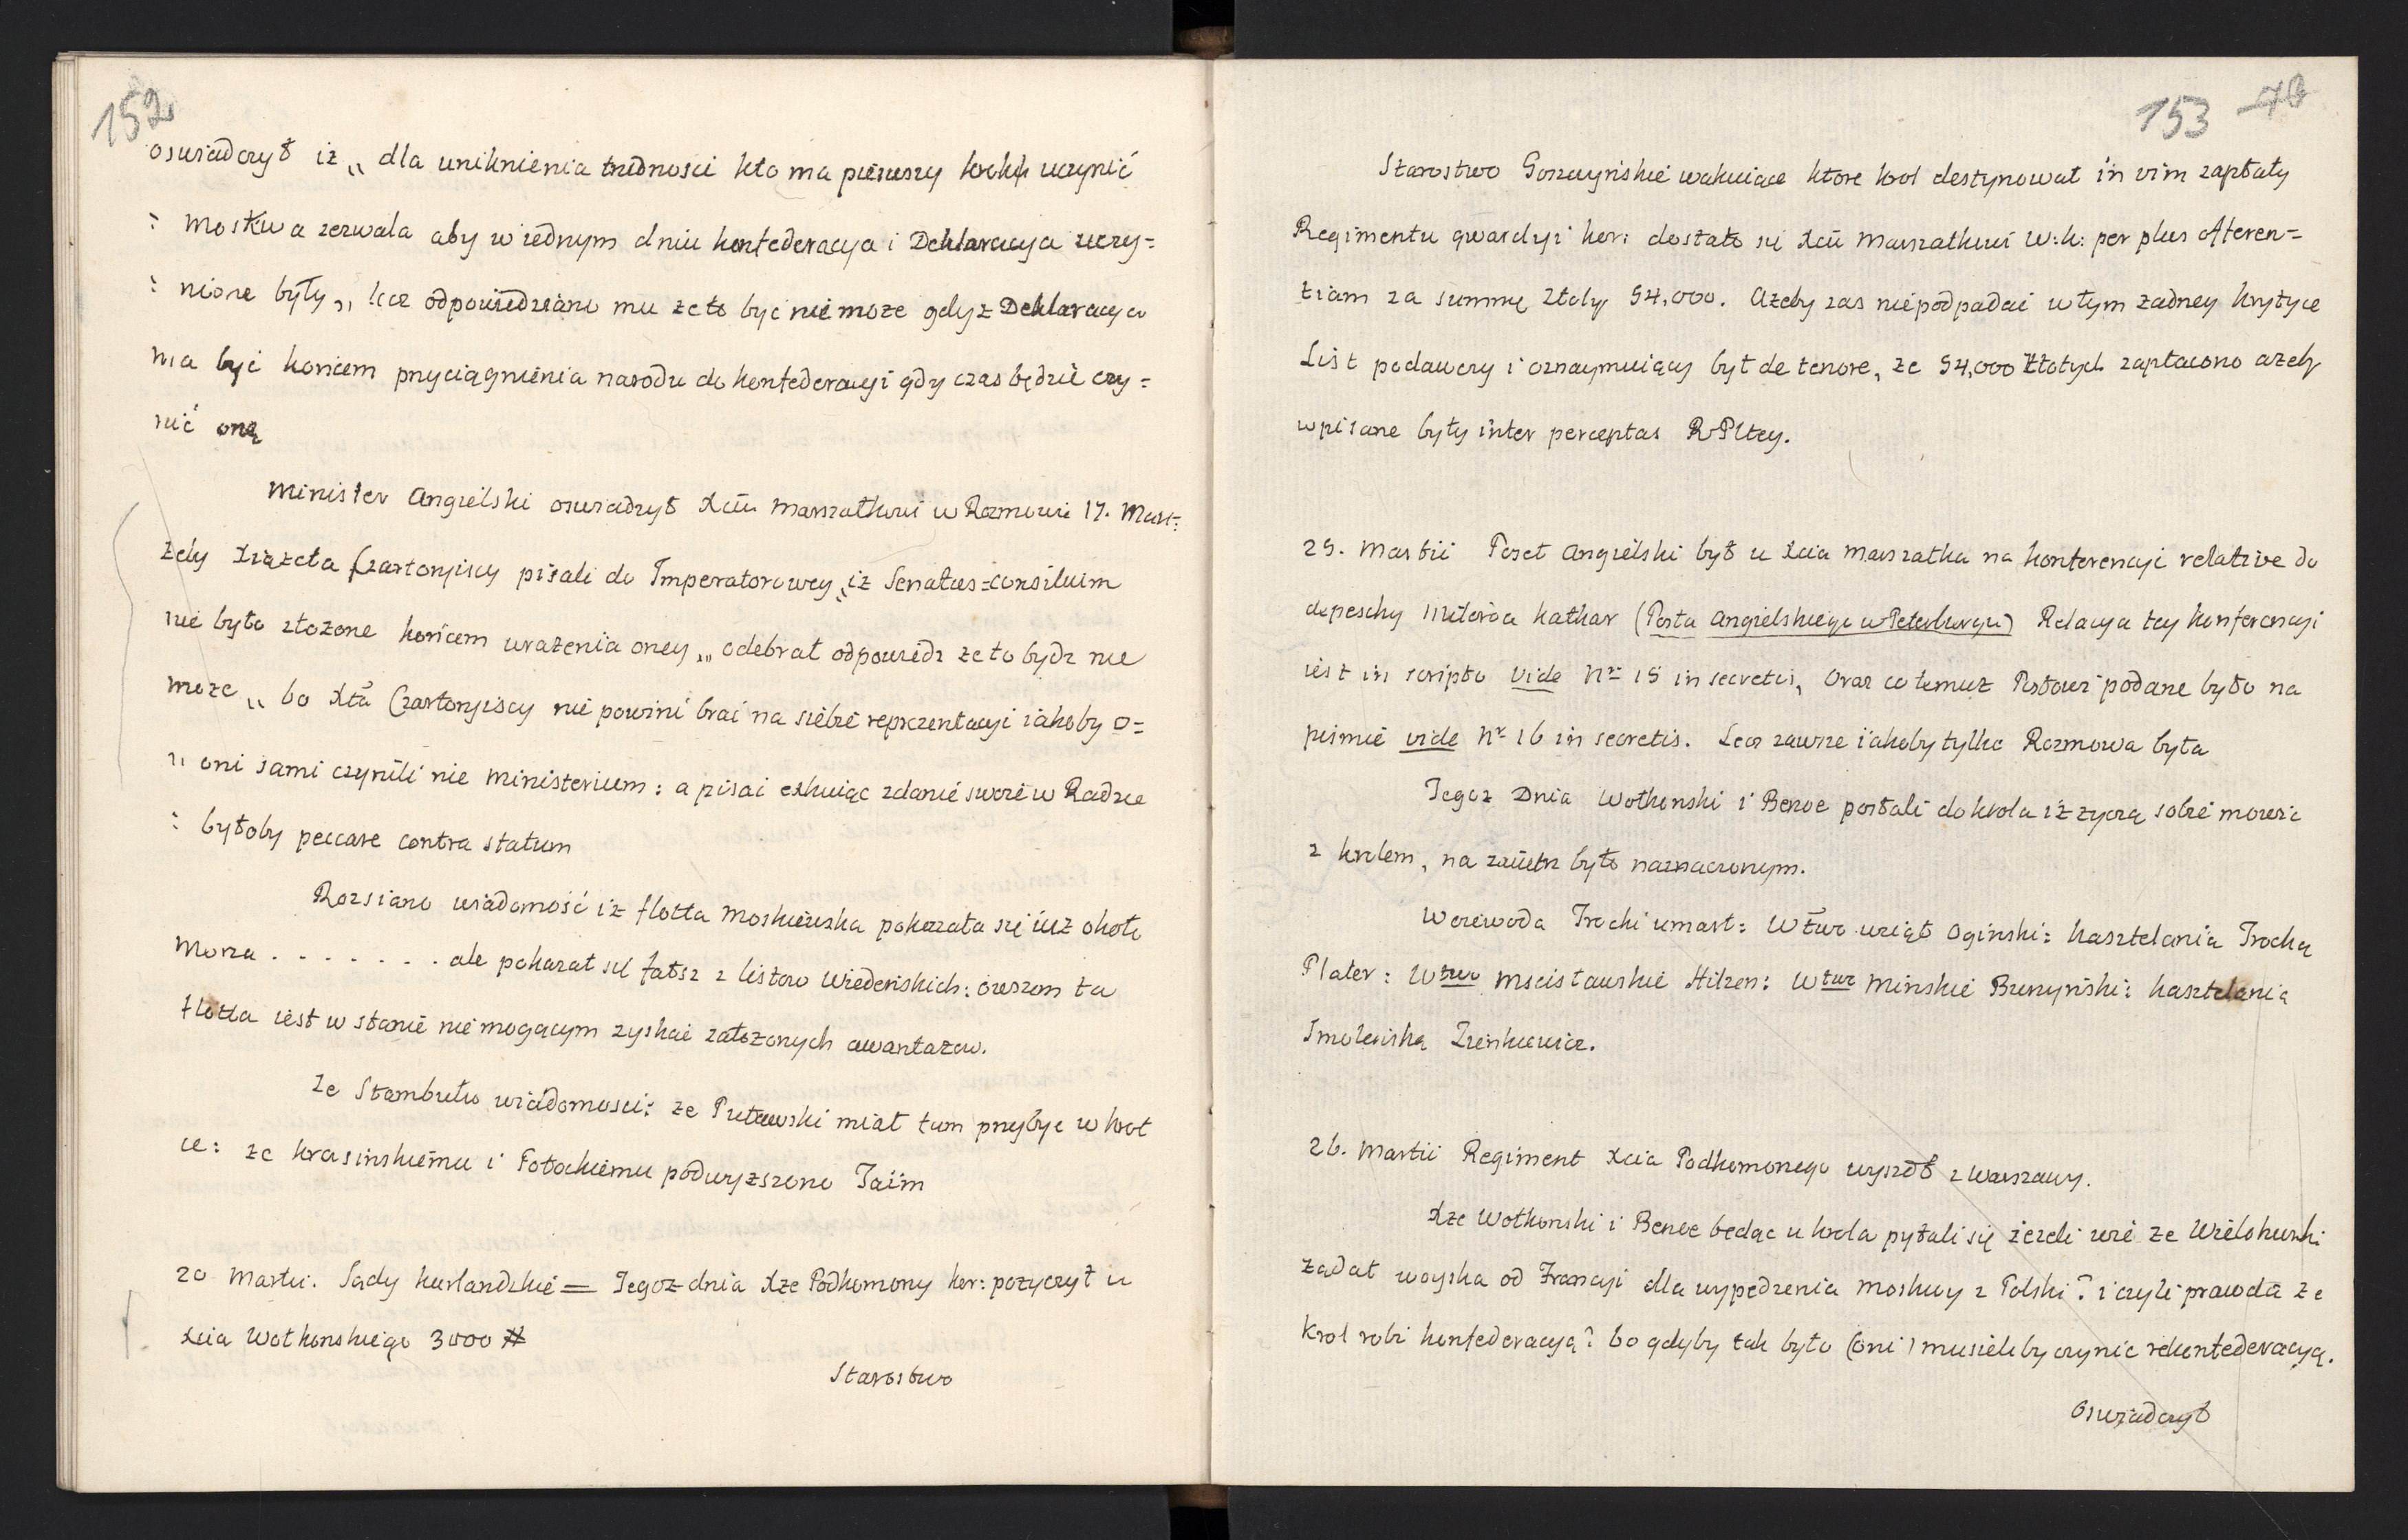 152
oswiadczył iz „ dla uniknienia trudnosci kto ma pierwszy krok uczynić
: Moskwa zezwala aby w iednym dniu konfederacya i Deklaracya uczy=
: nione były „ lecz odpowiedziano mu ze to być nie moze gdyz Deklaracya
ma być koncem przyciągnienia narodu do konfederacyi gdy czas będzie czy=
nić oną
Minister Angielski oswiadczył Xciu Marszałkowi w Rozmowie 17. Mart:
zeby Xiązęta Czartoryiscy pisali do Imperatorowey „ iz Senatus=consilium
nie było złozone koncem urazenia oney „ odebrał odpowiedz ze to bydz nie
moze „ bo Xta Czartoryiscy nie powini brać na siebie reprezentacyi iakoby o=
„ oni sami czynili nie ministerium : a pisać exkuiąc zdanie swoie w Radzie
: byłoby peccare contra statum
Rozsiano wiadomość iz flotta Moskiewska pokazała się iuz około
Morza . . . . . . . ale pokazał się fałsz z listow Wiedenskich : owszem ta
flotta iest w stanie nie mogącym zyskać załozonych awantazow.
Ze Stambułu wiadomosci : ze Puławski miał tam przybyć w krot
ce : ze Krasinskiemu i Potockiemu podwyzszono Taim
20 Martii. Sądy kurlandzkie = Tegoz dnia Xze Podkomony kor: pozyczył u
Xcia Wołkonskiego 3000 #
Starostwo
153 76
Starostwo Goszczynskie wakuiące ktore krol destynował in vim zapłaty
Regimentu gwardyi kor: dostało się Xciu Marszałkowi W: k: per plus Aferen=
tiam za summę Złoty 54,000. Azeby zas niepodpadać w tym zadney krytyce
List podawczy i oznaymuiący był de tenore, ze 54,000 Złotych zapłacono azeby
wpisane były inter perceptas RPltey.
25. Martii Poseł Angielski był u Xcia Marszałka na konferencyi relative do
depeschy Milorda Kathar (Posła Angielskiego w Peterburgu) Relacya tey konferencyi
iest in scripto vide Nr 15 in secretis, Oraz co temuz Posłowi podane było na
pismie vide Nr 16 in secretis. Lecz zawsze iakoby tylko Rozmowa była
Tegoz Dnia Wołkonski i Benoe posłali do krola iz zyczą sobie mowic
z krolem, na zaiutrz było naznaczonym.
Woiewoda Trocki umarł : Wtwo wziął Oginski : kasztelania Trocką
Plater : Wtwo Mscisławskie Hilzen : Wtwo Minskie Burzyński : kasztelanią
Smolenską Zienkiewicz.
26. Martii Regiment Xcia Podkomonego wyszedł z Warszawy.
Xze Wołkonski i Benoe bedąc u krola pytali się iezeli wie ze Wielohurski
ządał woyska od Francyi dla wypedzenia Moskwy z Polski ? i czyli prawda ze
Krol robi konfederacyą ? bo gdyby tak było (oni) musieliby czynic rekonfederacyą.
Oswiadczył